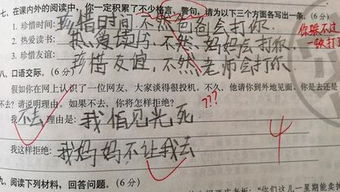 七、在课内外的阅读中，你一定积累了不少格言、警句，请为以下三个方面各写出一条。(6分)
1. 珍惜时间：珍惜时间，不然爸爸会打你.
2. 热爱读书：热爱读书，不然，妈妈会打你.
3. 珍惜友谊：珍惜友谊，不然老师会打你.
你躲不过
一顿打
八、口语交际。(6分)
假如你在网上认识了一位网友，大家谈得很投机。不久，他请你到外地见面，你是去还是
不去？请说明理由，如果不去，你将怎样拒绝？
???
我不去，理由是：我怕见光死
我这样拒绝：我妈妈不让我去
4
九、阅读下列材料，回答问题。(6分)